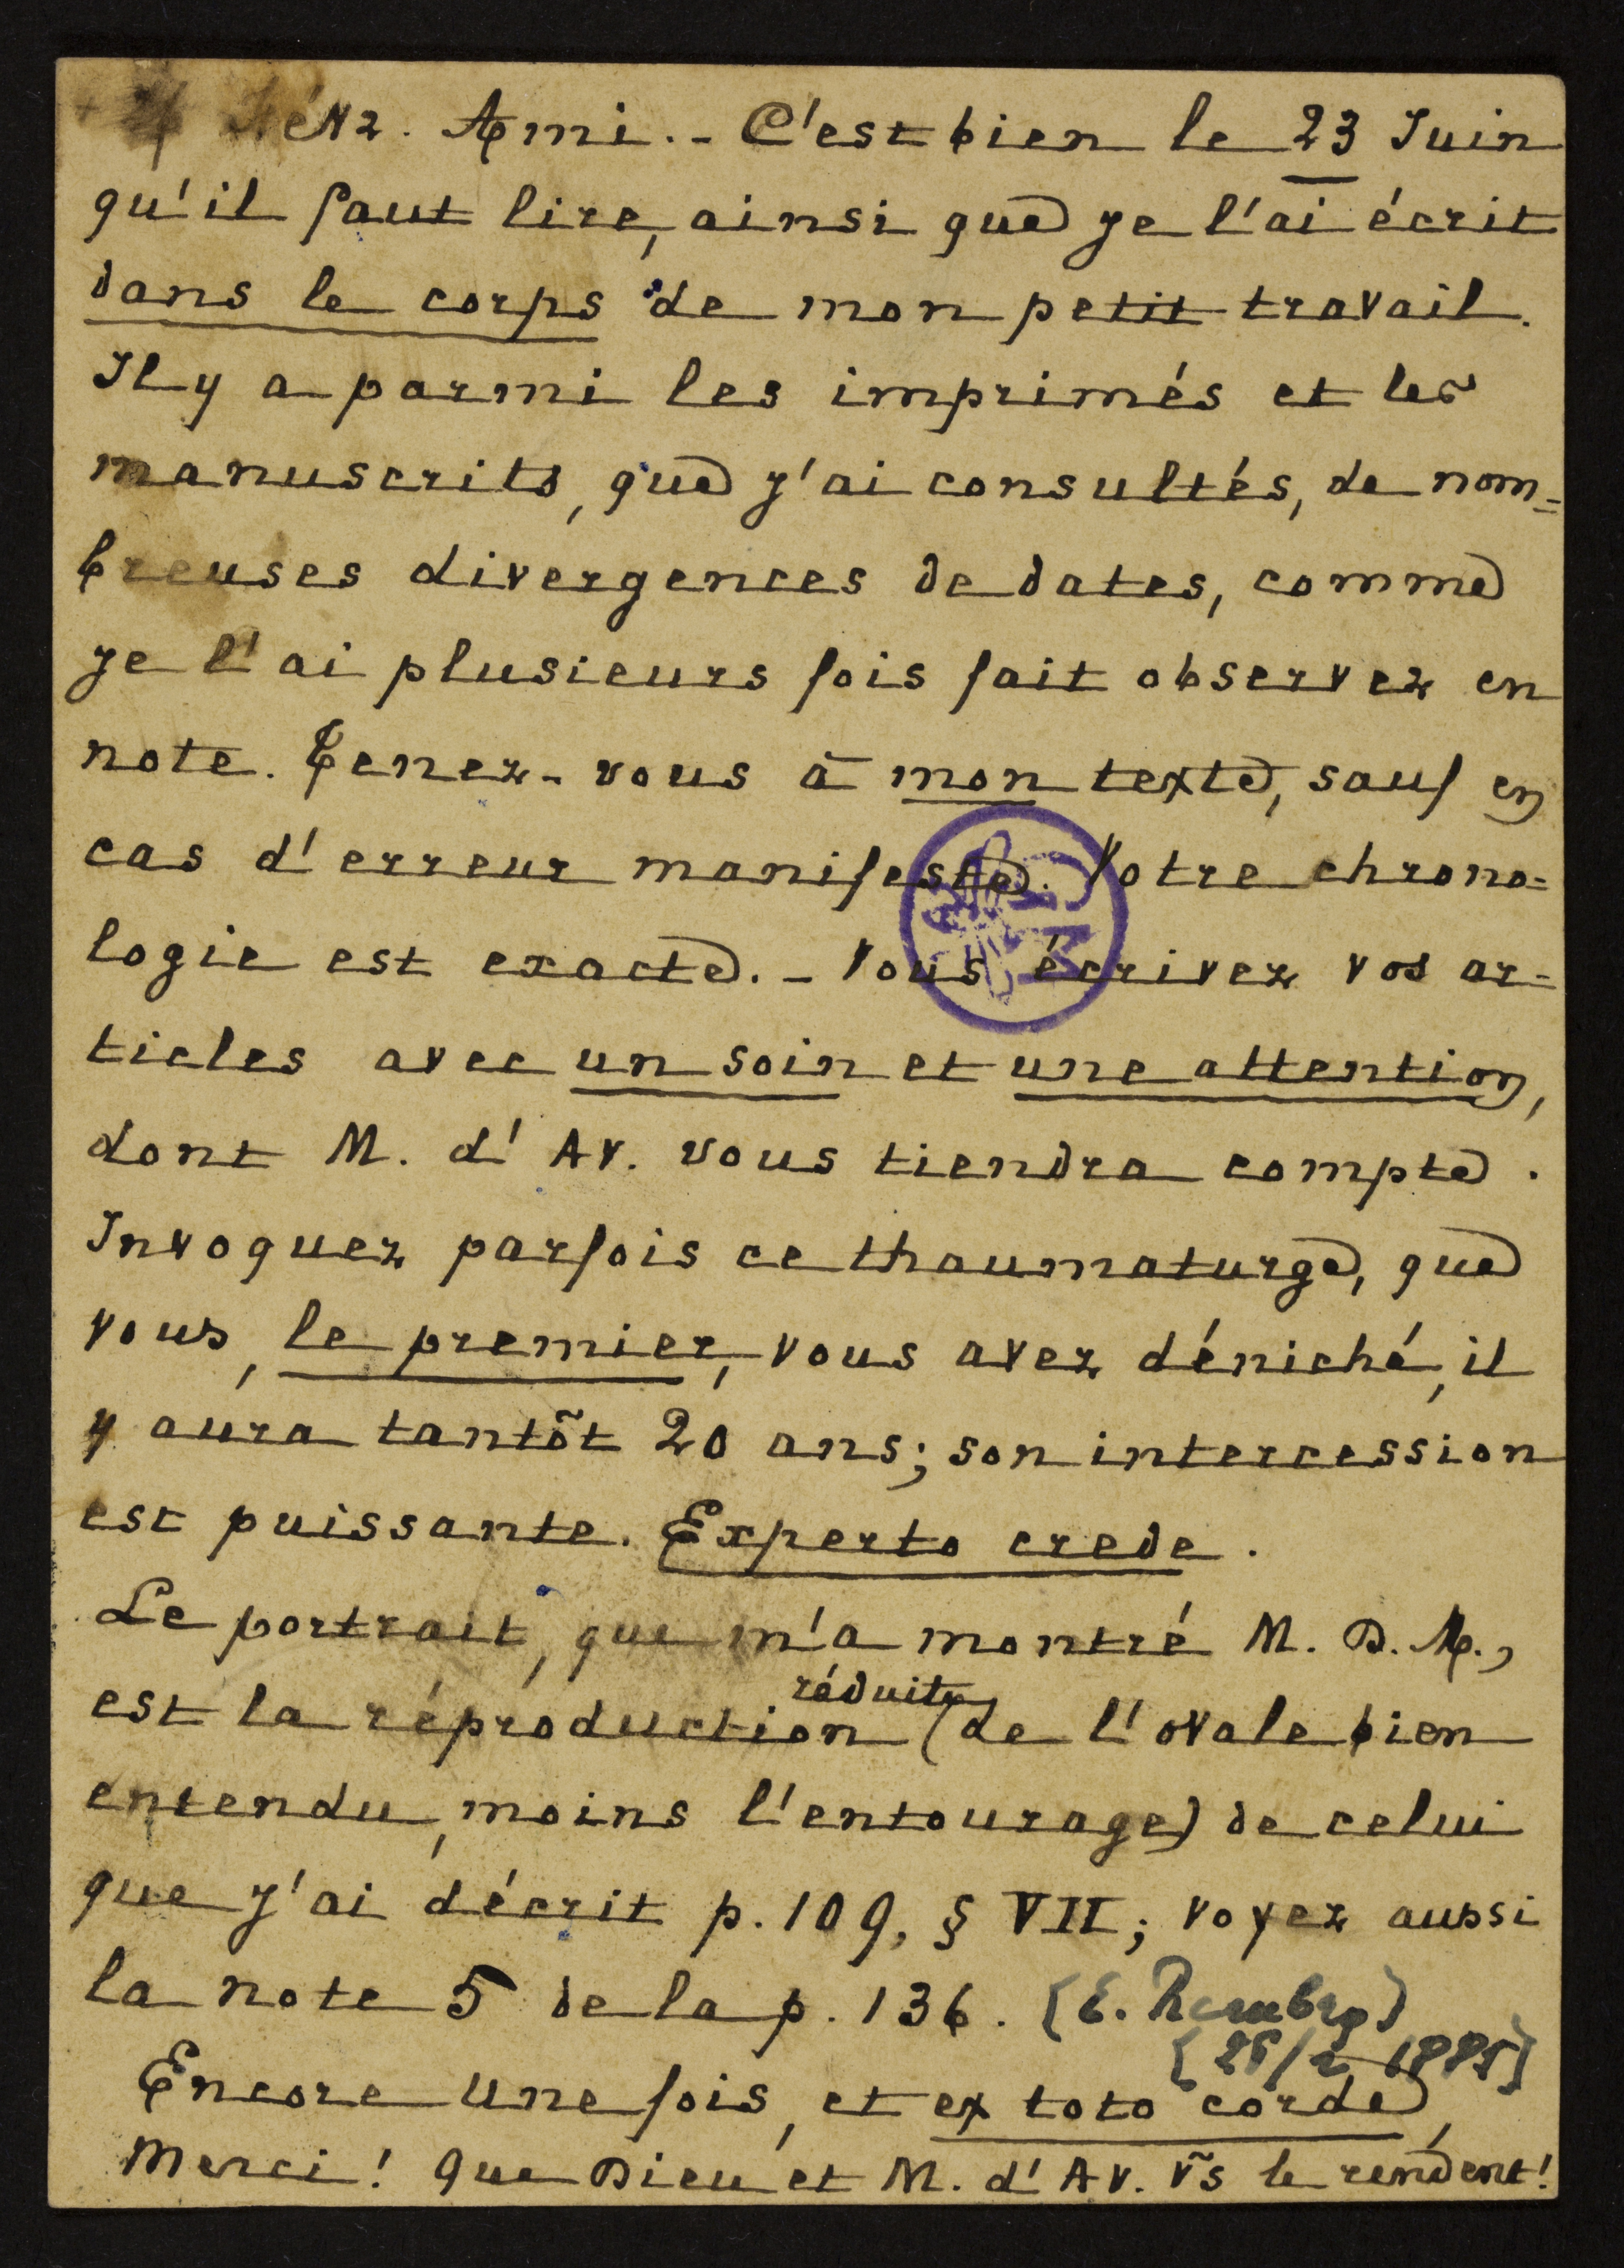 Ami. - C'est bien le 23 Juin
qu'il faut lire, ainsi que je l'ai écrit
dans le corps de mon petit travail.
Il y a parmi les imprimés et les
manuscrits, que j'ai consultés, de nom=
breuses divergences de dates, comme
je l'ai plusieurs fois fait observer en
note. Tenez-vous à mon texte, sauf en
cas d'erreur manifeste. Votre chrono=
logie est exacte. - Vous écrivez vos ar=
ticles avec un soin et une attention,
dont M. d'Av. vous tiendra compte.
Invoquez parfois ce thaumaturge, que
vous, le premier, vous avez déniché, il
y aura tantôt 20 ans; son intercession
est puissante. Experto crede.
Le portrait, que m'a montré M. D. M.,
réduite
est la réproduction (de l'ovale bien
entendu, moins l'entourage) de celui
que j'ai décrit p. 109, § VII; voyez aussi
la note 5 de la p. 136. (E. Rembry)
Encore une fois, et ex toto corde,
Merci! Que Dieu et M. d'Av. vs le rendent!